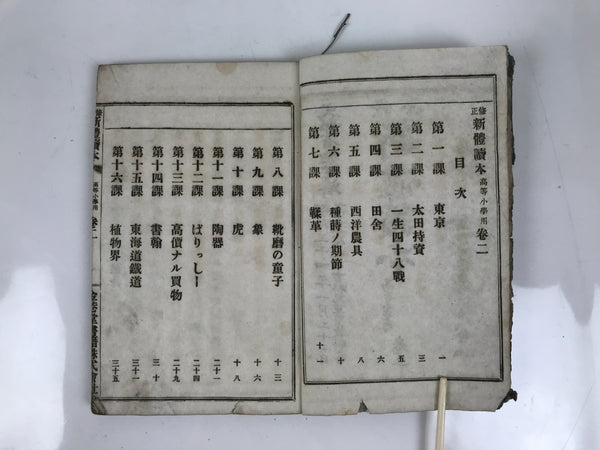 修正 新體讀本 高等小學用 卷二
目次
第一課 東京 一
第二課 太田持資 三
第三課 一生四十八戰 五
第四課 田舍 六
第五課 西洋農具 八
第六課 種蒔ノ期節 十
第七課 鞣革 十一
第八課 靴磨の童子 十三
第九課 象 十六
第十課 虎 十八
第十一課 陶器 二十一
第十二課 ぱりっしー 二十四
第十三課 高價ナル買物 二十九
第十四課 書翰 三十
第十五課 東海道鐵道 三十一
第十六課 植物界 三十五
修正 新體讀本 高等小學用 卷二
金港堂書籍株式會社